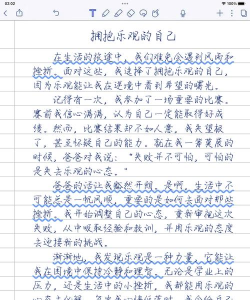 拥抱乐观的自己
在生活的旅途中，我们难免会遇到风雨和
挫折。面对这些，我选择了拥抱乐观的自己，
因为乐观能让我在逆境中看到希望的曙光。
记得有一次，我参加了一场重要的比赛。
赛前我信心满满，认为自己一定能取得好成
绩。然而，比赛结果却不如人意，我失望极
了，甚至怀疑自己的能力。就在我一筹莫展的
时候，爸爸对我说：“失败并不可怕，可怕的
是失去乐观的心态。”
爸爸的话让我豁然开朗。是啊，生活中不
可能总是一帆风顺，重要的是如何去面对那些
挫折。我开始调整自己的心态，重新审视这次
失败，从中吸取经验和教训，并用乐观的态度
去迎接新的挑战。
渐渐地，我发现乐观是一种力量，它能让
我在困境中保持冷静和理智。无论是学业上的
压力，还是生活中的小挫折，我都能用乐观的